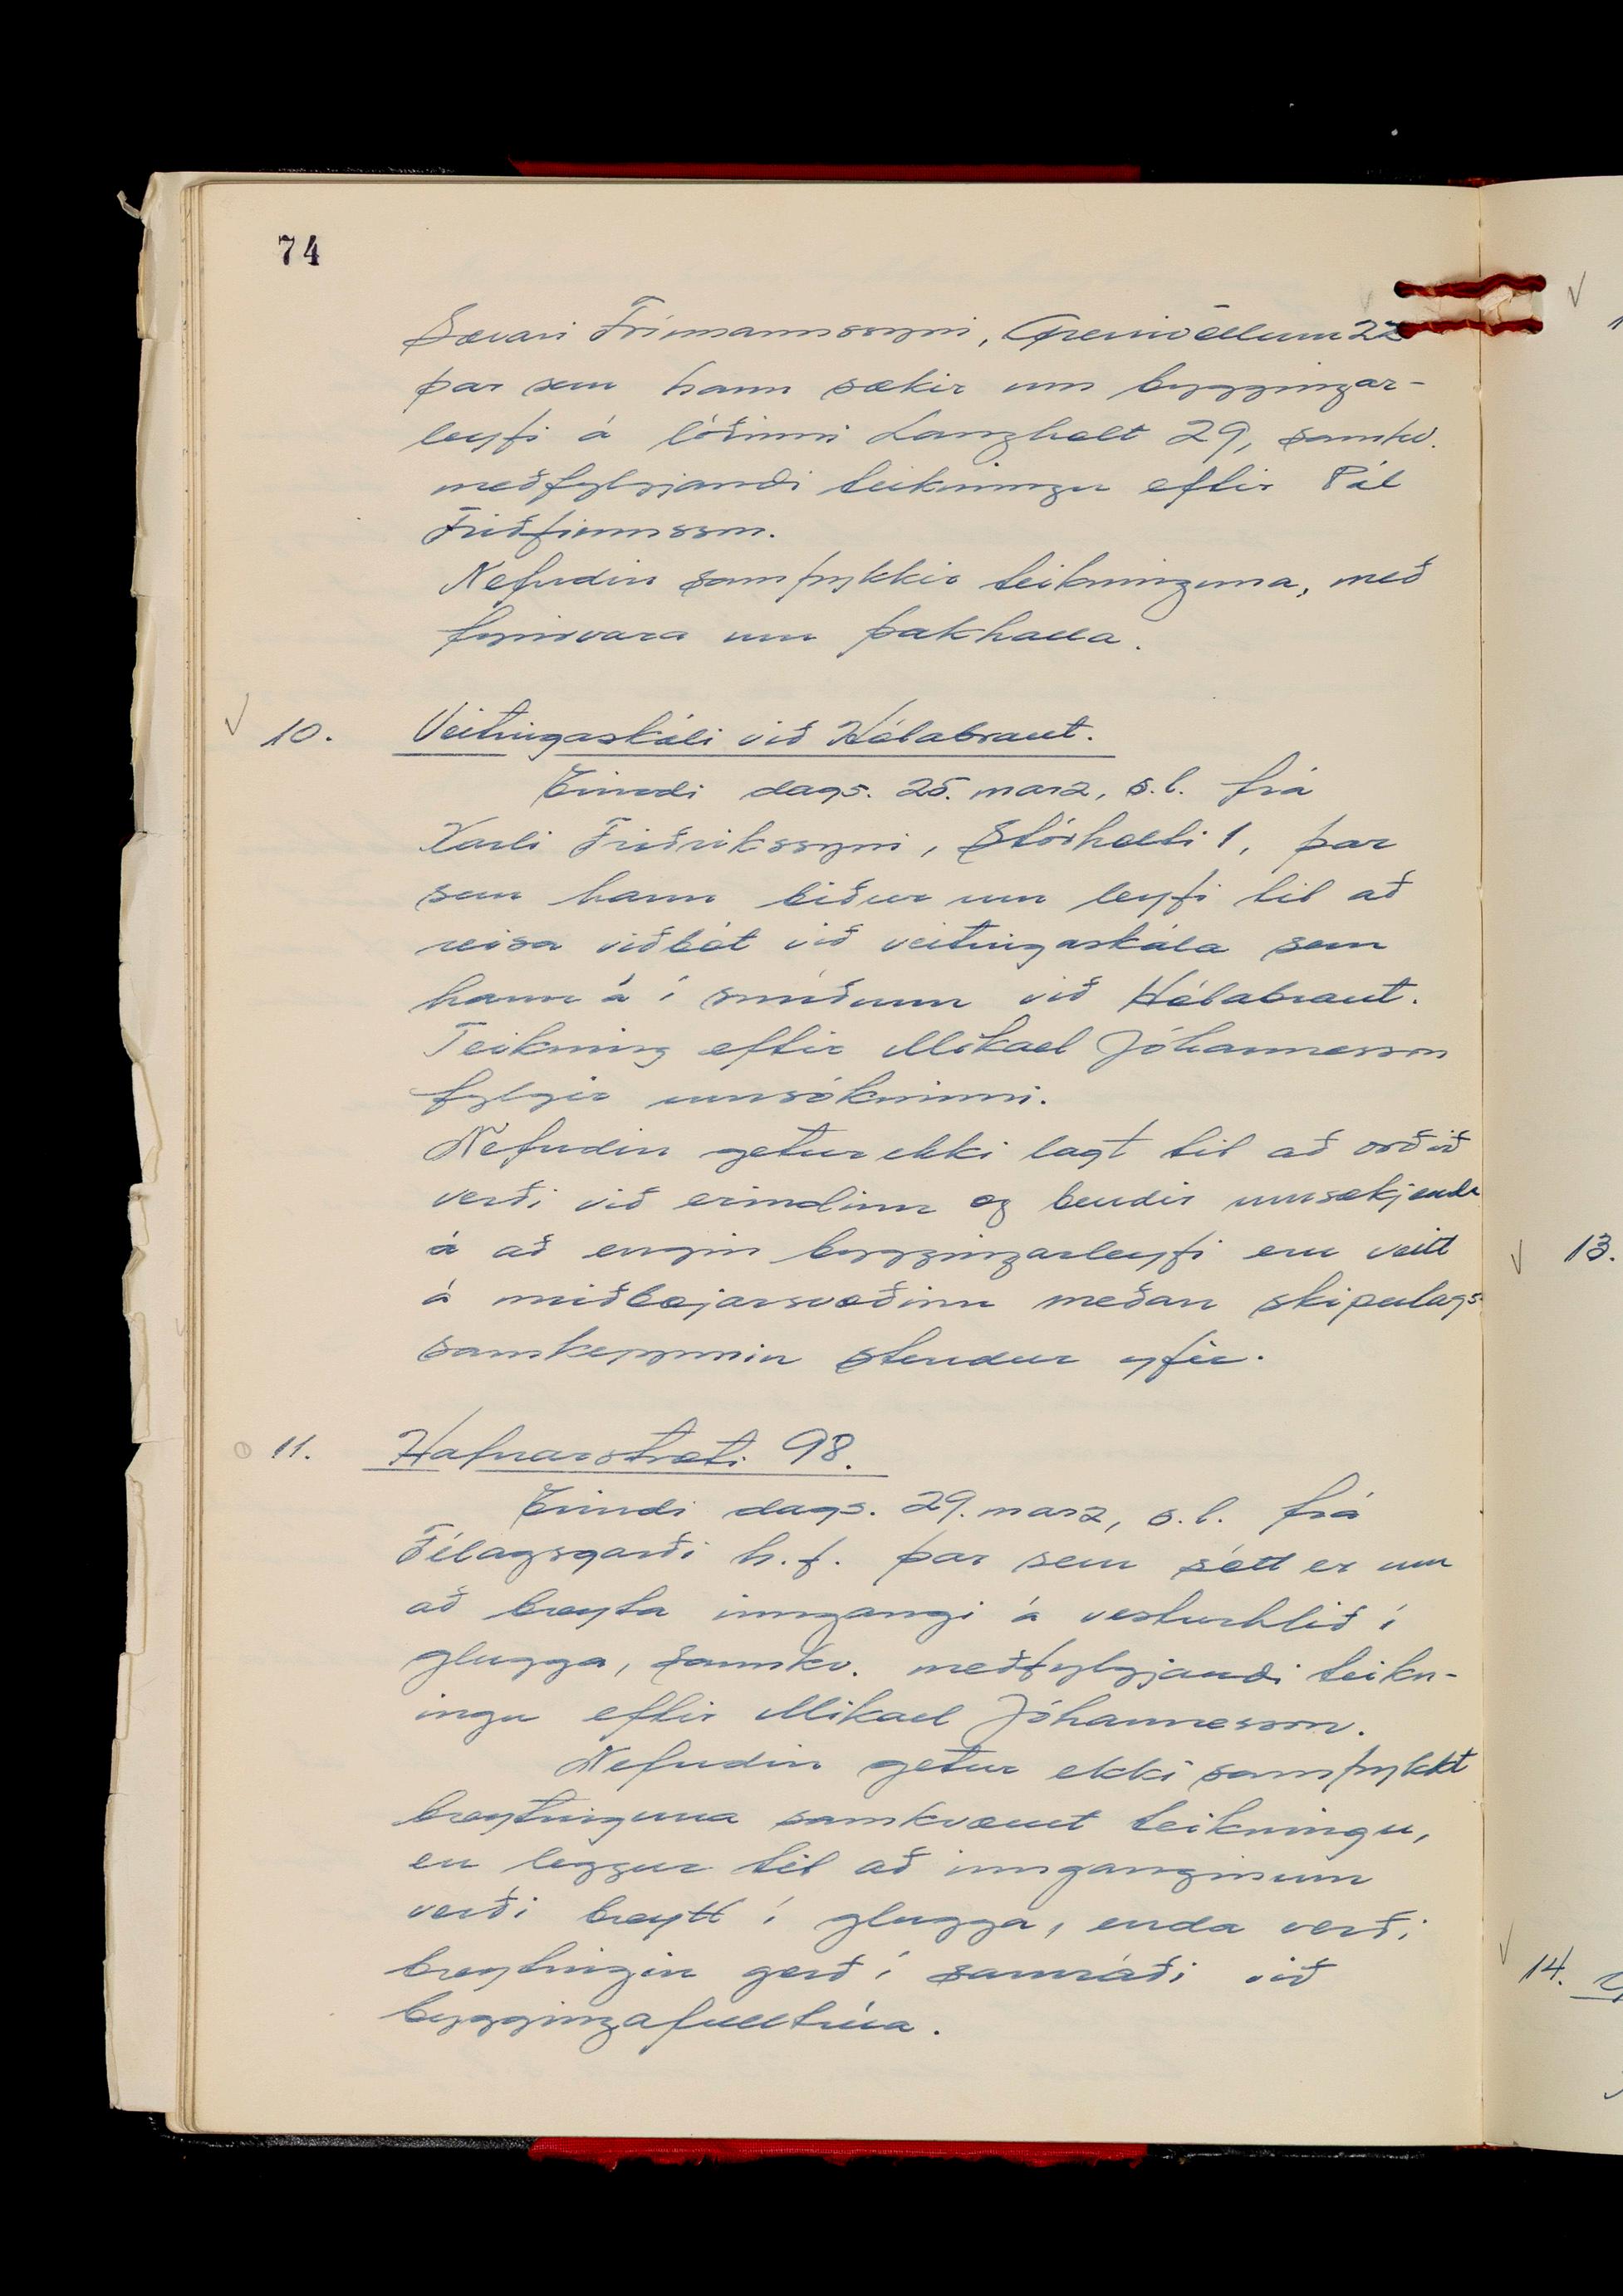 74
Sævari Frímannssyni, Grenivöllum 22
þar sem hann sækir um byggingar-
leyfi á lóðinni Langholt 29, samkv.
meðfylgjandi teikningu eftir Pál
Friðfinnsson.
Nefndin samþykkir teikninguna, með
fyrirvara um þakhalla.
10. Veitingaskáli við Hólabraut.
Erindi dags. 25. marz, s.l. frá
Karli Friðrikssyni, Stórholti 1, þar
sem hann biður um leyfi til að
reisa viðbót við veitingaskála sem
hann á í smíðum við Hólabraut.
Teikning eftir Mikael Jóhannesson
fylgir umsókninni.
Nefndin getur ekki lagt til að orðið
verði við erindinu og bendir umsækjenda
á að engin byggingarleyfi eru veitt
á miðbæjarsvæðinu meðan skipulags-
samkeppnin stendur yfir.
11. Hafnarstræti 98.
Erindi dags. 29. marz, s.l. frá
Félagsgarði h.f. þar sem sótt er um
að breyta inngangi á vesturhlið í
glugga, samkv. meðfylgjandi teikn-
ingu eftir Mikael Jóhannesson.
Nefndin getur ekki samþykkt
breytinguna samkvæmt teikningu,
en leggur til að innganginum
verði breytt í glugga, enda verði
breytingin gerð í samráði við
byggingafulltrúa.
13.
14.